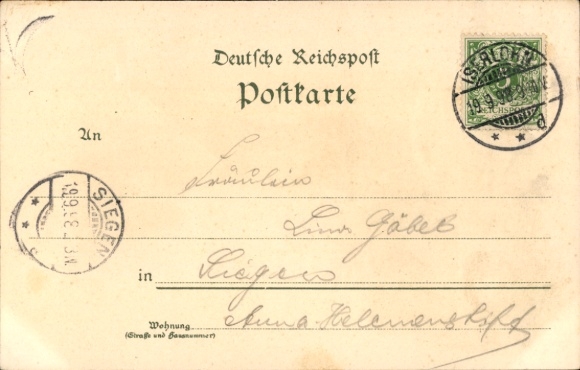 Deutsche Reichspost
Postkarte
ISERLOHN
19.9.98
REICHSPOST
d
An
SIEGEN
19.9.98
Fräulein
Lina Göbel
in Siegen
Wohnung
(Straße und Hausnummer)
Anna